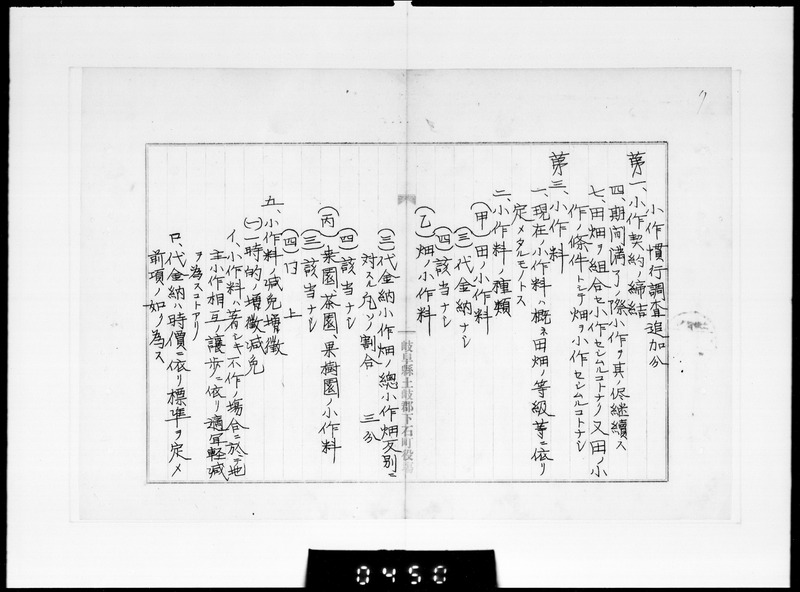 小作慣行調査追加分
第一、小作契約ノ締結
四、期間満了ノ際小作ヲ其ノ侭継續ス
七、田畑ヲ組合セ小作セシムルコトナク又田ノ小
作ノ条件トシテ畑ヲ小作セシムルコトナシ
第三、小作料
一、現在ノ小作料ハ概ネ田畑ノ等級等ニ依リ
定メタルモノトス
二、小作料ノ種類
(甲)田ノ小作料
(三)代金納ナシ
(四)該当ナシ
(乙)畑ノ小作料
岐阜縣土岐郡下石町役場
(三)代金納小作畑ノ總小作畑反別ニ
対スル凡ソノ割合 三分
(四)該当ナシ
(丙)桒園、茶園、果樹園ノ小作料
(三)該当ナシ
(四)同上
五、小作料ノ減免増徴
(一)一時的ノ増徴減免
イ、小作料ハ著シキ不作ノ場合ニ於テ地
主小作相互ノ譲歩ニ依リ適宜軽減
ヲ為スコトアリ
ロ、代金納ハ時價ニ依リ標準ヲ定メ
前項ノ如ク為ス
0450